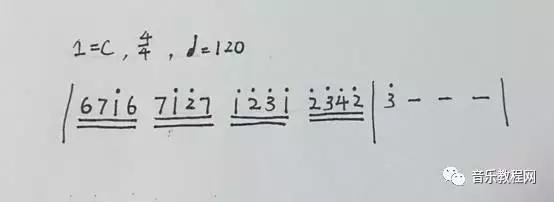 1=C, 4/4, ♩=120
| 6 7 1̇ 6 7 1̇ 2̇ 7 1̇ 2̇ 3̇ 1̇ 2̇ 3̇ 4̇ 2̇ | 3̇ - - - |
音乐教程网